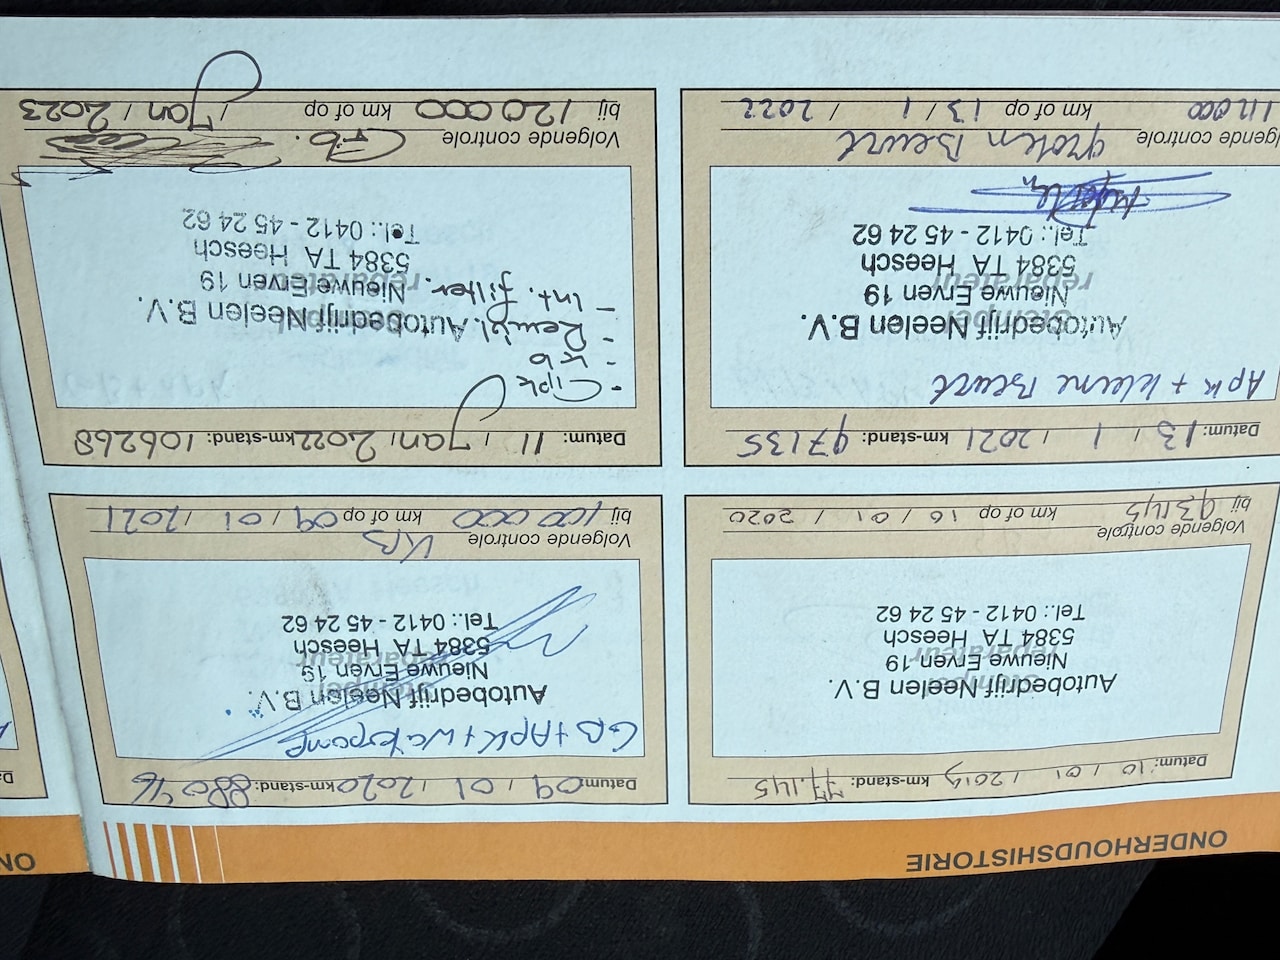 ONDERHOUDSHISTORIE
Datum: 10 / 01 / 2019 km-stand: 77.145
Stempel
reparateur
Autobedrijf Neelen B.V.
Nieuwe Erven 19
5384 TA Heesch
Tel.: 0412 - 45 24 62
Volgende controle
bij 93.145 km of op 10 / 01 / 2020
Datum: 09 / 01 / 2020 km-stand: 88046
GB + APK + Waterpomp
Stempel
reparateur
Autobedrijf Neelen B.V.
Nieuwe Erven 19
5384 TA Heesch
Tel.: 0412 - 45 24 62
Volgende controle KB
bij 100 000 km of op 09 / 01 / 2021
Datum: 13 / 1 / 2021 km-stand: 97135
APK + kleine Beurt
Stempel
reparateur
Autobedrijf Neelen B.V.
Nieuwe Erven 19
5384 TA Heesch
Tel.: 0412 - 45 24 62
lgende controle groten Beurt
km of op 13 / 1 / 2022
Datum: 11 / Jan / 2022 km-stand: 106268
- apk
- kb
- Remvl.
- Int. filter.
reparateur
Autobedrijf Neelen B.V.
Nieuwe Erven 19
5384 TA Heesch
Tel.: 0412 - 45 24 62
Volgende controle Gb.
bij 120000 km of op / Jan / 2023
ON
Da